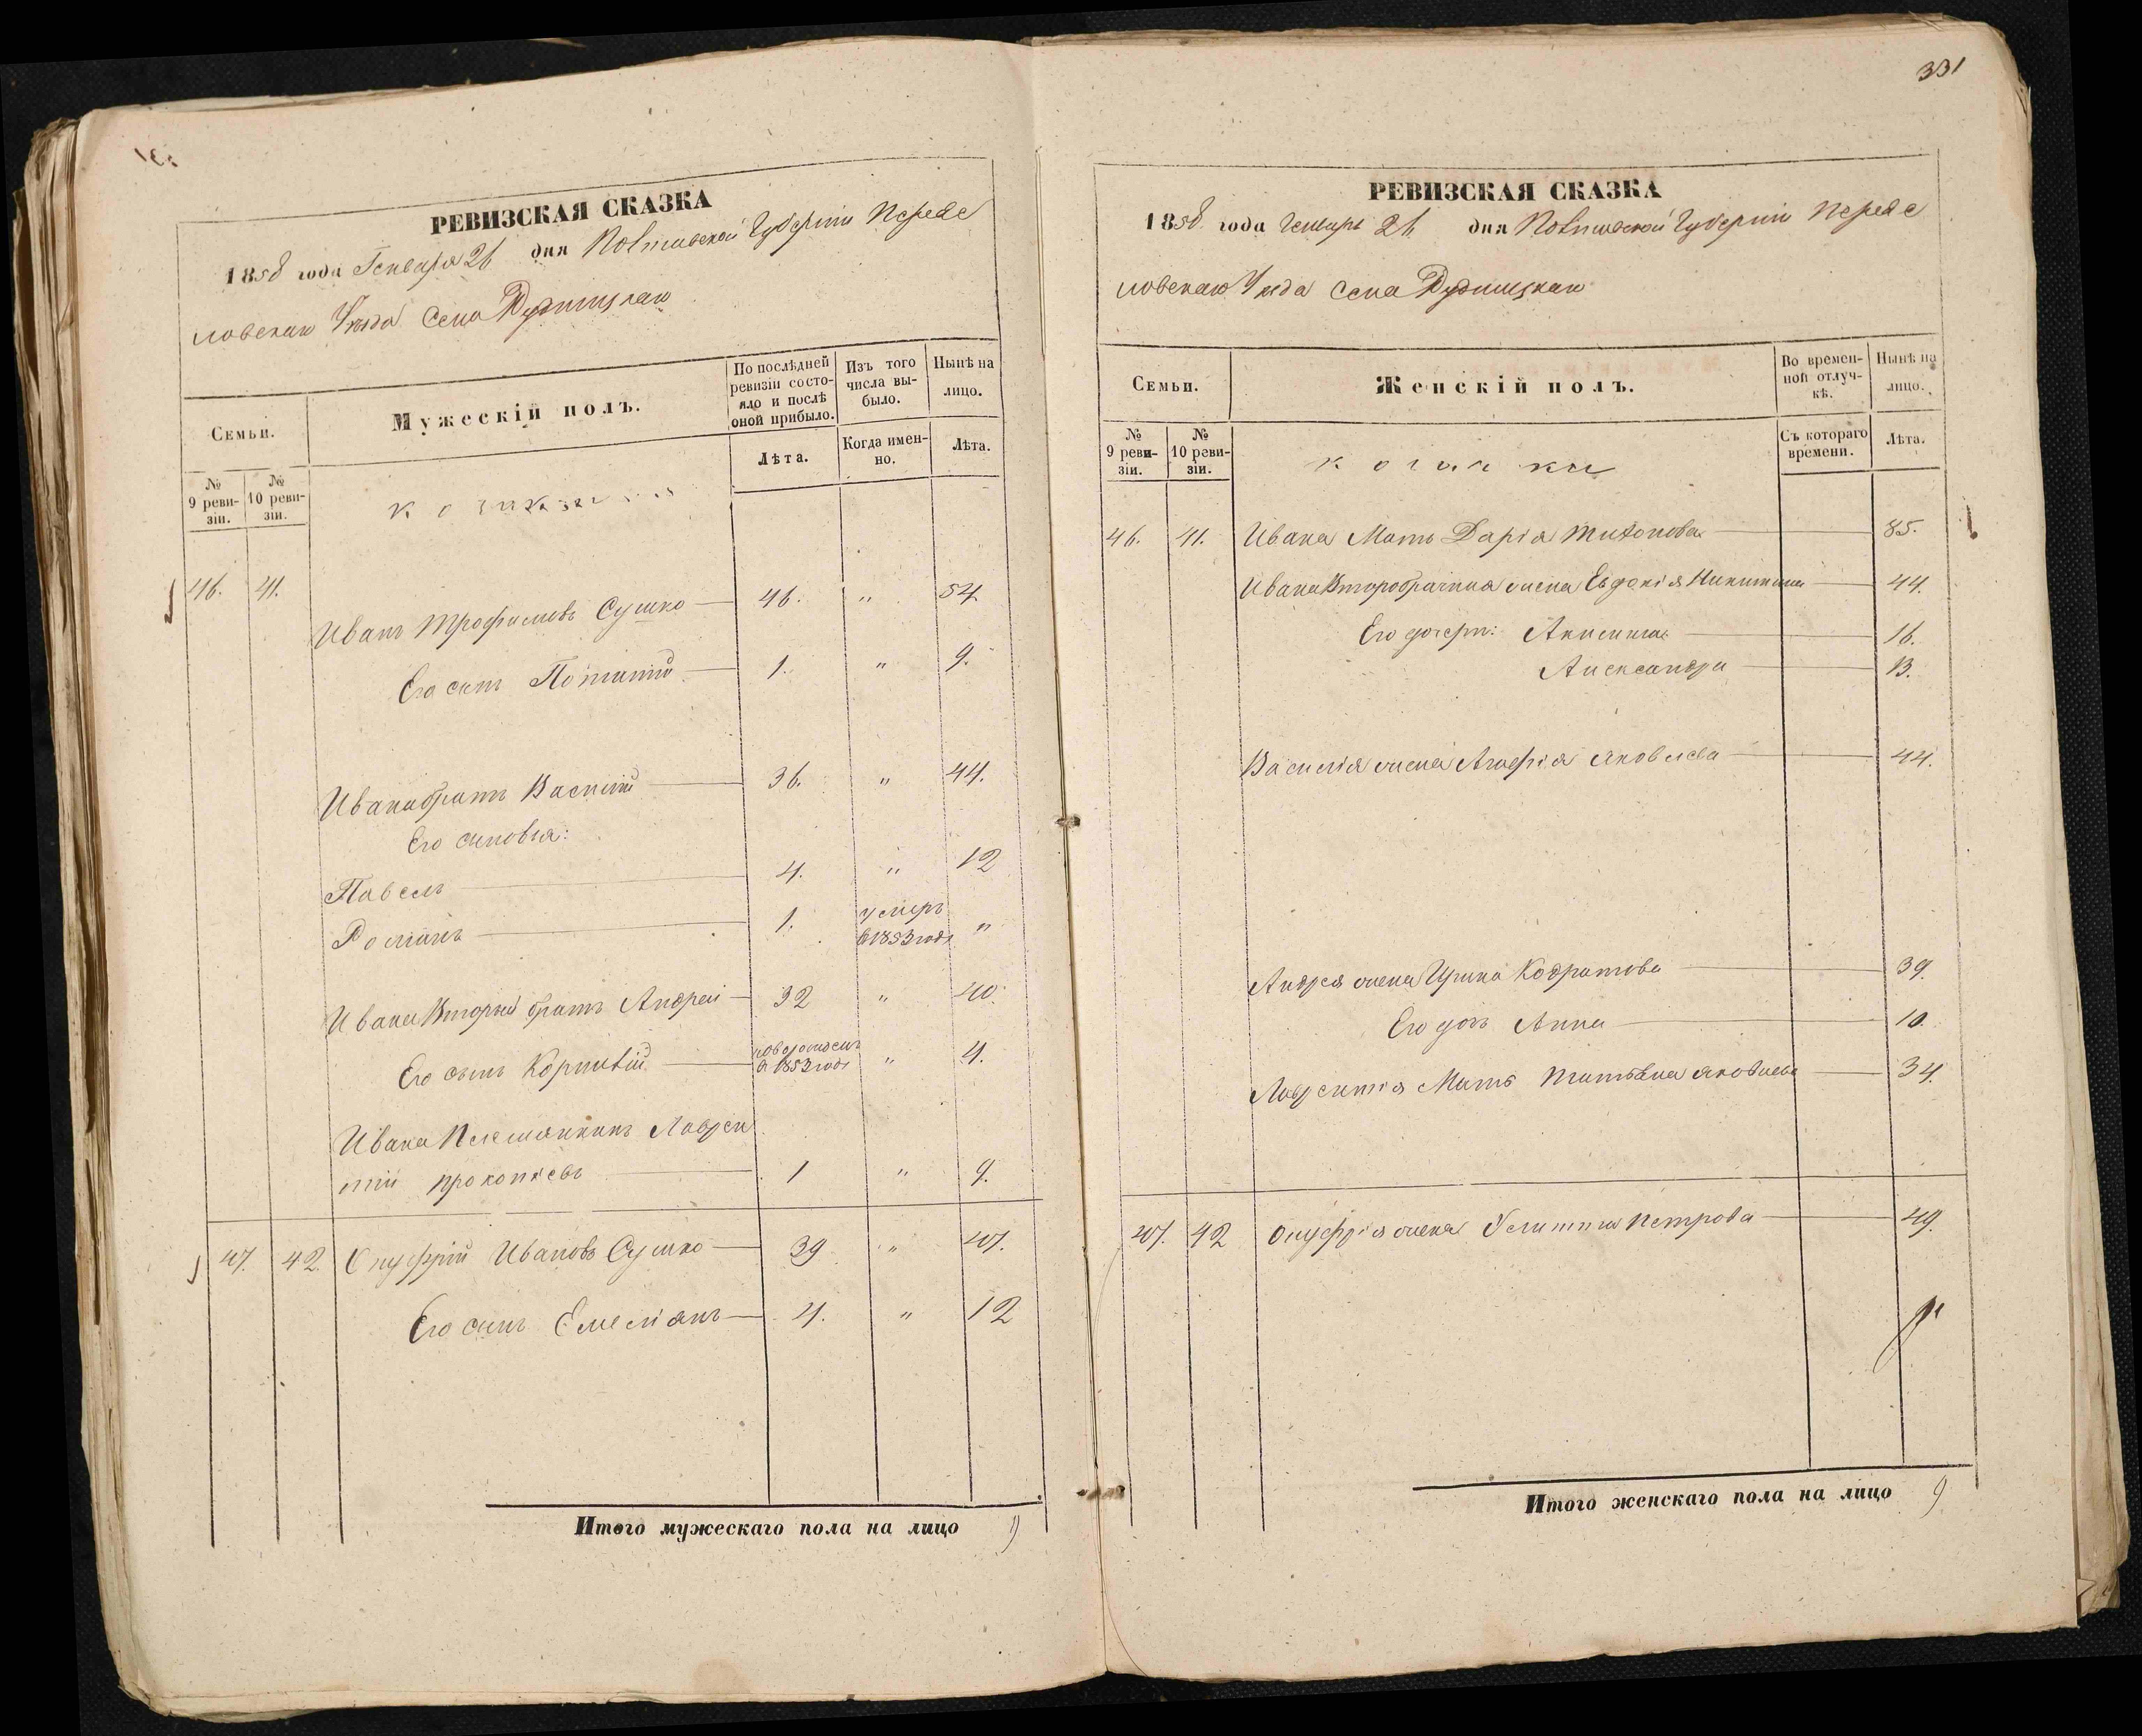 331
РЕВИЗСКАЯ СКАЗКА
1858 года Генваря 26 дня Полтавской Губерніи Переяс
ловскаго Уезда Села Рудницкаго
Семьи.
Мужескій полъ.
По послѣдней ревизіи состояло и послѣ оной прибыло.
Изъ того числа выбыло.
Ныпѣ на лицо.
№ 9 ревизіи.
№ 10 ревизіи.
козаки
Лѣта.
Когда именно.
Лѣта.
46. 41. Иванъ Трофимовъ Сушко 46. " 54
Его сынъ Потапій 1. " 9.
Ивана братъ Василій 36. " 44.
Его сыновья:
Павелъ 4. " 12
Романъ 1. умеръ в 1853 годе "
Ивана Второй братъ Андрей 32 " 40.
Его сынъ Корнилій новорожденъ в 1853 годе " 4.
Ивана Племянникъ Лаврен
тій Прокопіевъ 1 " 9.
47. 42. Онуфрій Ивановъ Сушко 39 " 47.
Его сынъ Емеліянъ 4. " 12
Итого мужескаго пола на лицо 9
РЕВИЗСКАЯ СКАЗКА
1858 года Генваря 26 дня Полтавской Губерніи Переяс
ловскаго Уезда Села Рудницкаго
Семьи.
Женскій полъ.
Во временной отлучкѣ.
Нынѣ на лицо.
№ 9 ревизіи.
№ 10 ревизіи.
козачки
Съ котораго времени.
Лѣта.
46. 41. Ивана Мать Дарія Тихонова 85.
Ивана Второбрачная жена Евдокія Никитина 44.
Его дочери: Акилина 16.
Александра 13.
Василія жена Агафія Яковлева 44.
Андрея жена Ирина Кодратова 39.
Его дочь Анна 10.
Лаврентія Мать Татьяна Яковлева 34.
47. 42 Онуфрія жена Улиппа Петрова 49.
Итого женскаго пола на лицо 9